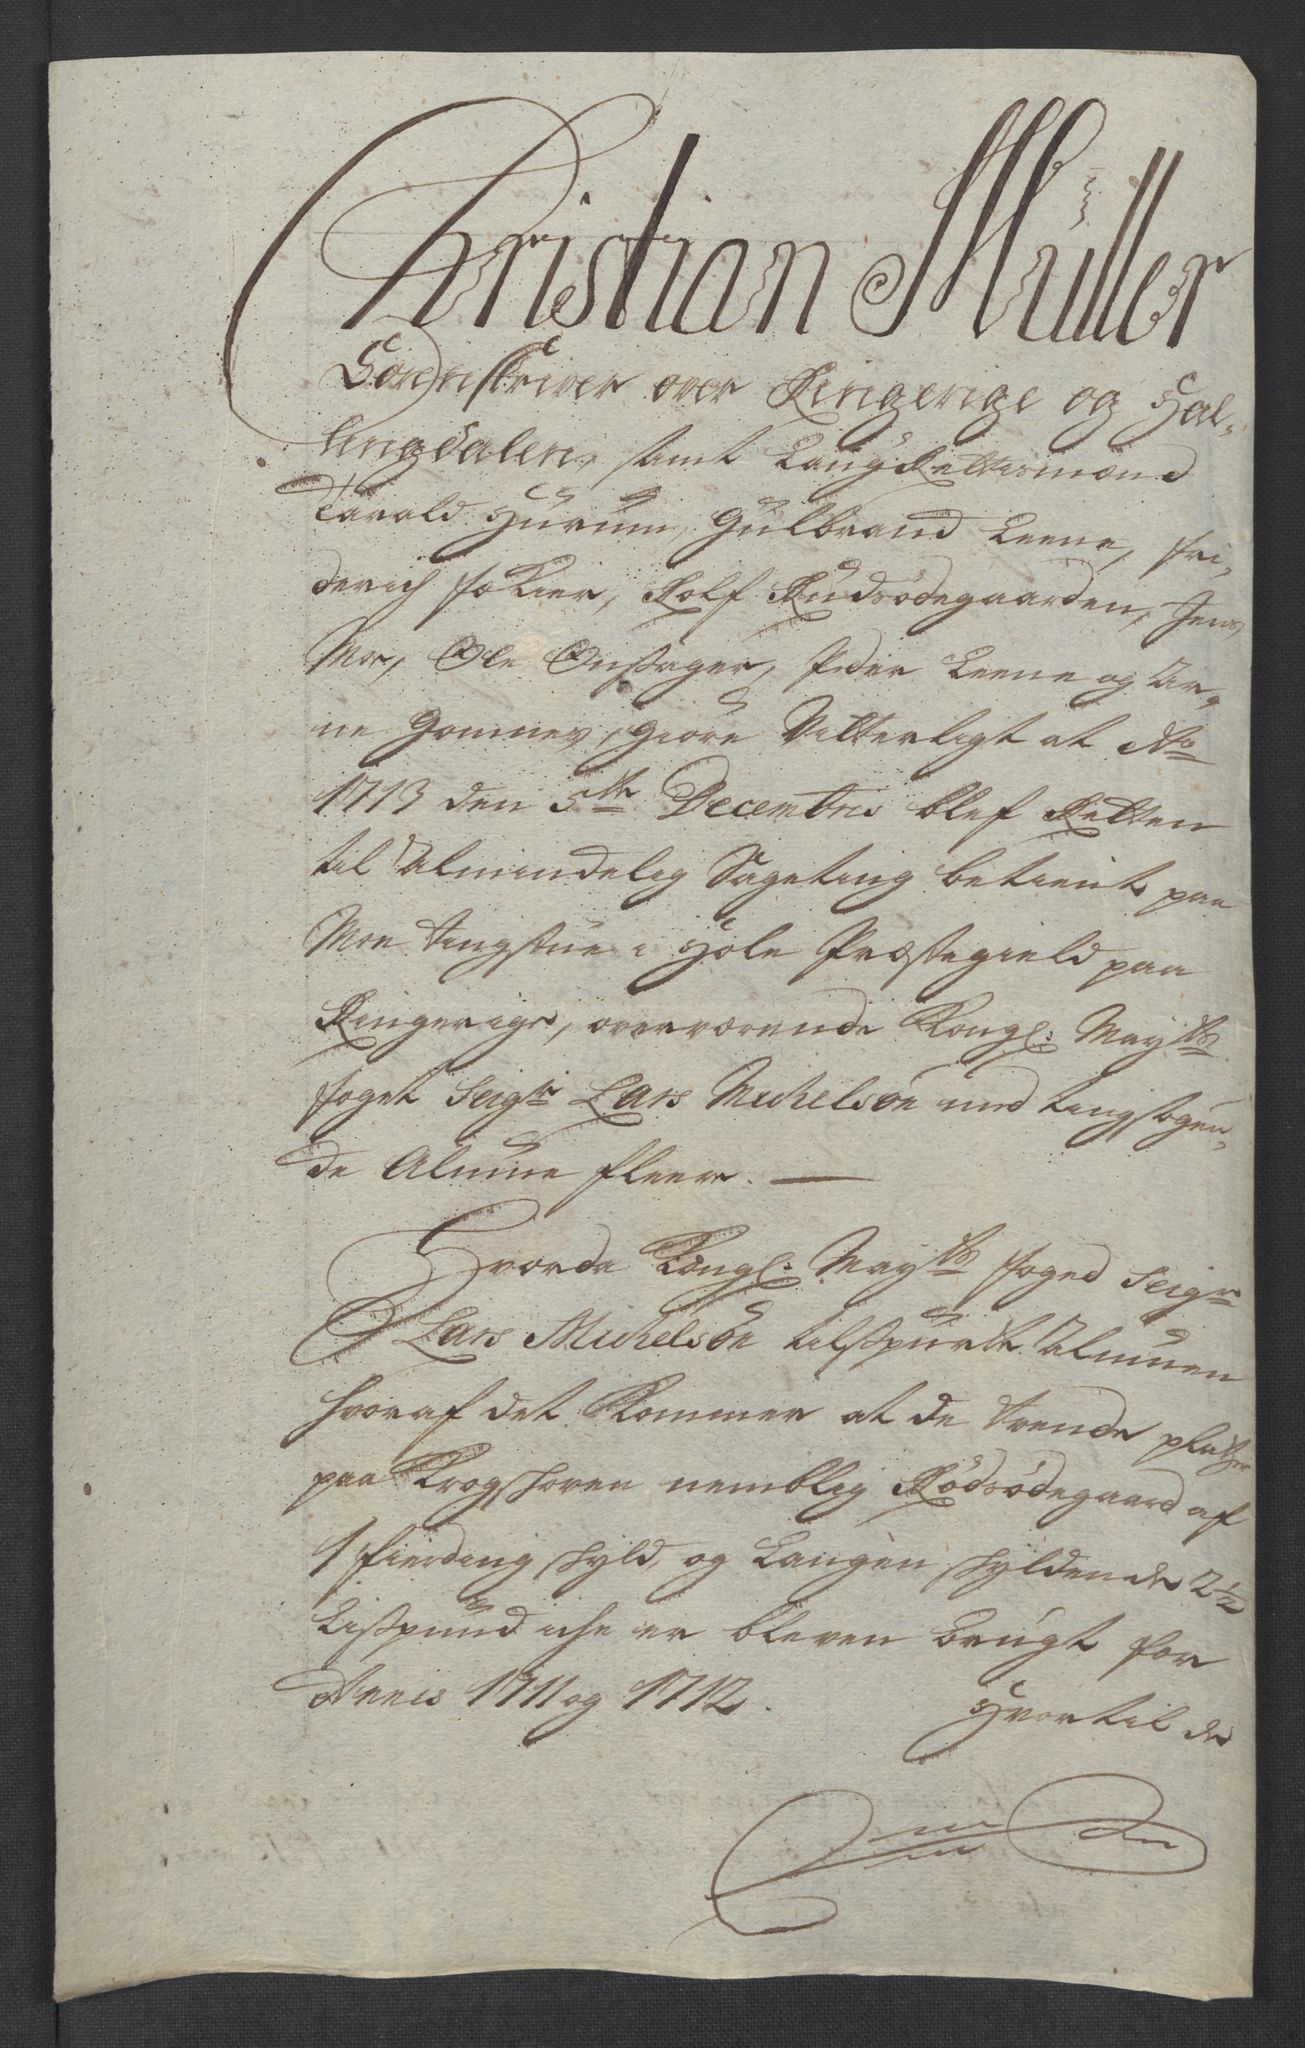 Christian Müller
Sorenskriver over Ringerige og Hal-
lingdalen, samt Laugrettismænd
Harald Hurum, Gulbrand Leene, Fri-
derich Fækier, Rolf Rudsødegaarden, Jens
Moe, Ole Onsager, Peder Leene og Ar-
ne Gommes, Giøre Vitterligt at Ao
1713 den 5te Decembris blef Retten
til Almindelig Sageting betient paa
Moe Tingstue i Hole Præstegield paa
Ringerige, overværende Kongl: Mayts
foget Seigr Lars Michelsøn med tingsøgen-
de Almue fleer.
Hvorda Kongl: Mayts foged Seigr
Lars Michelsøn tilspurte Almuen
hvoraf det kommer at de trende pladtzer
paa Krogskoven nemblig Rødsødegaard af
1 fierding skyld, og Laugen skyldende 2½
Lispund iche er bleven brugt for
Annis 1711 og 1712.
Hvortil de